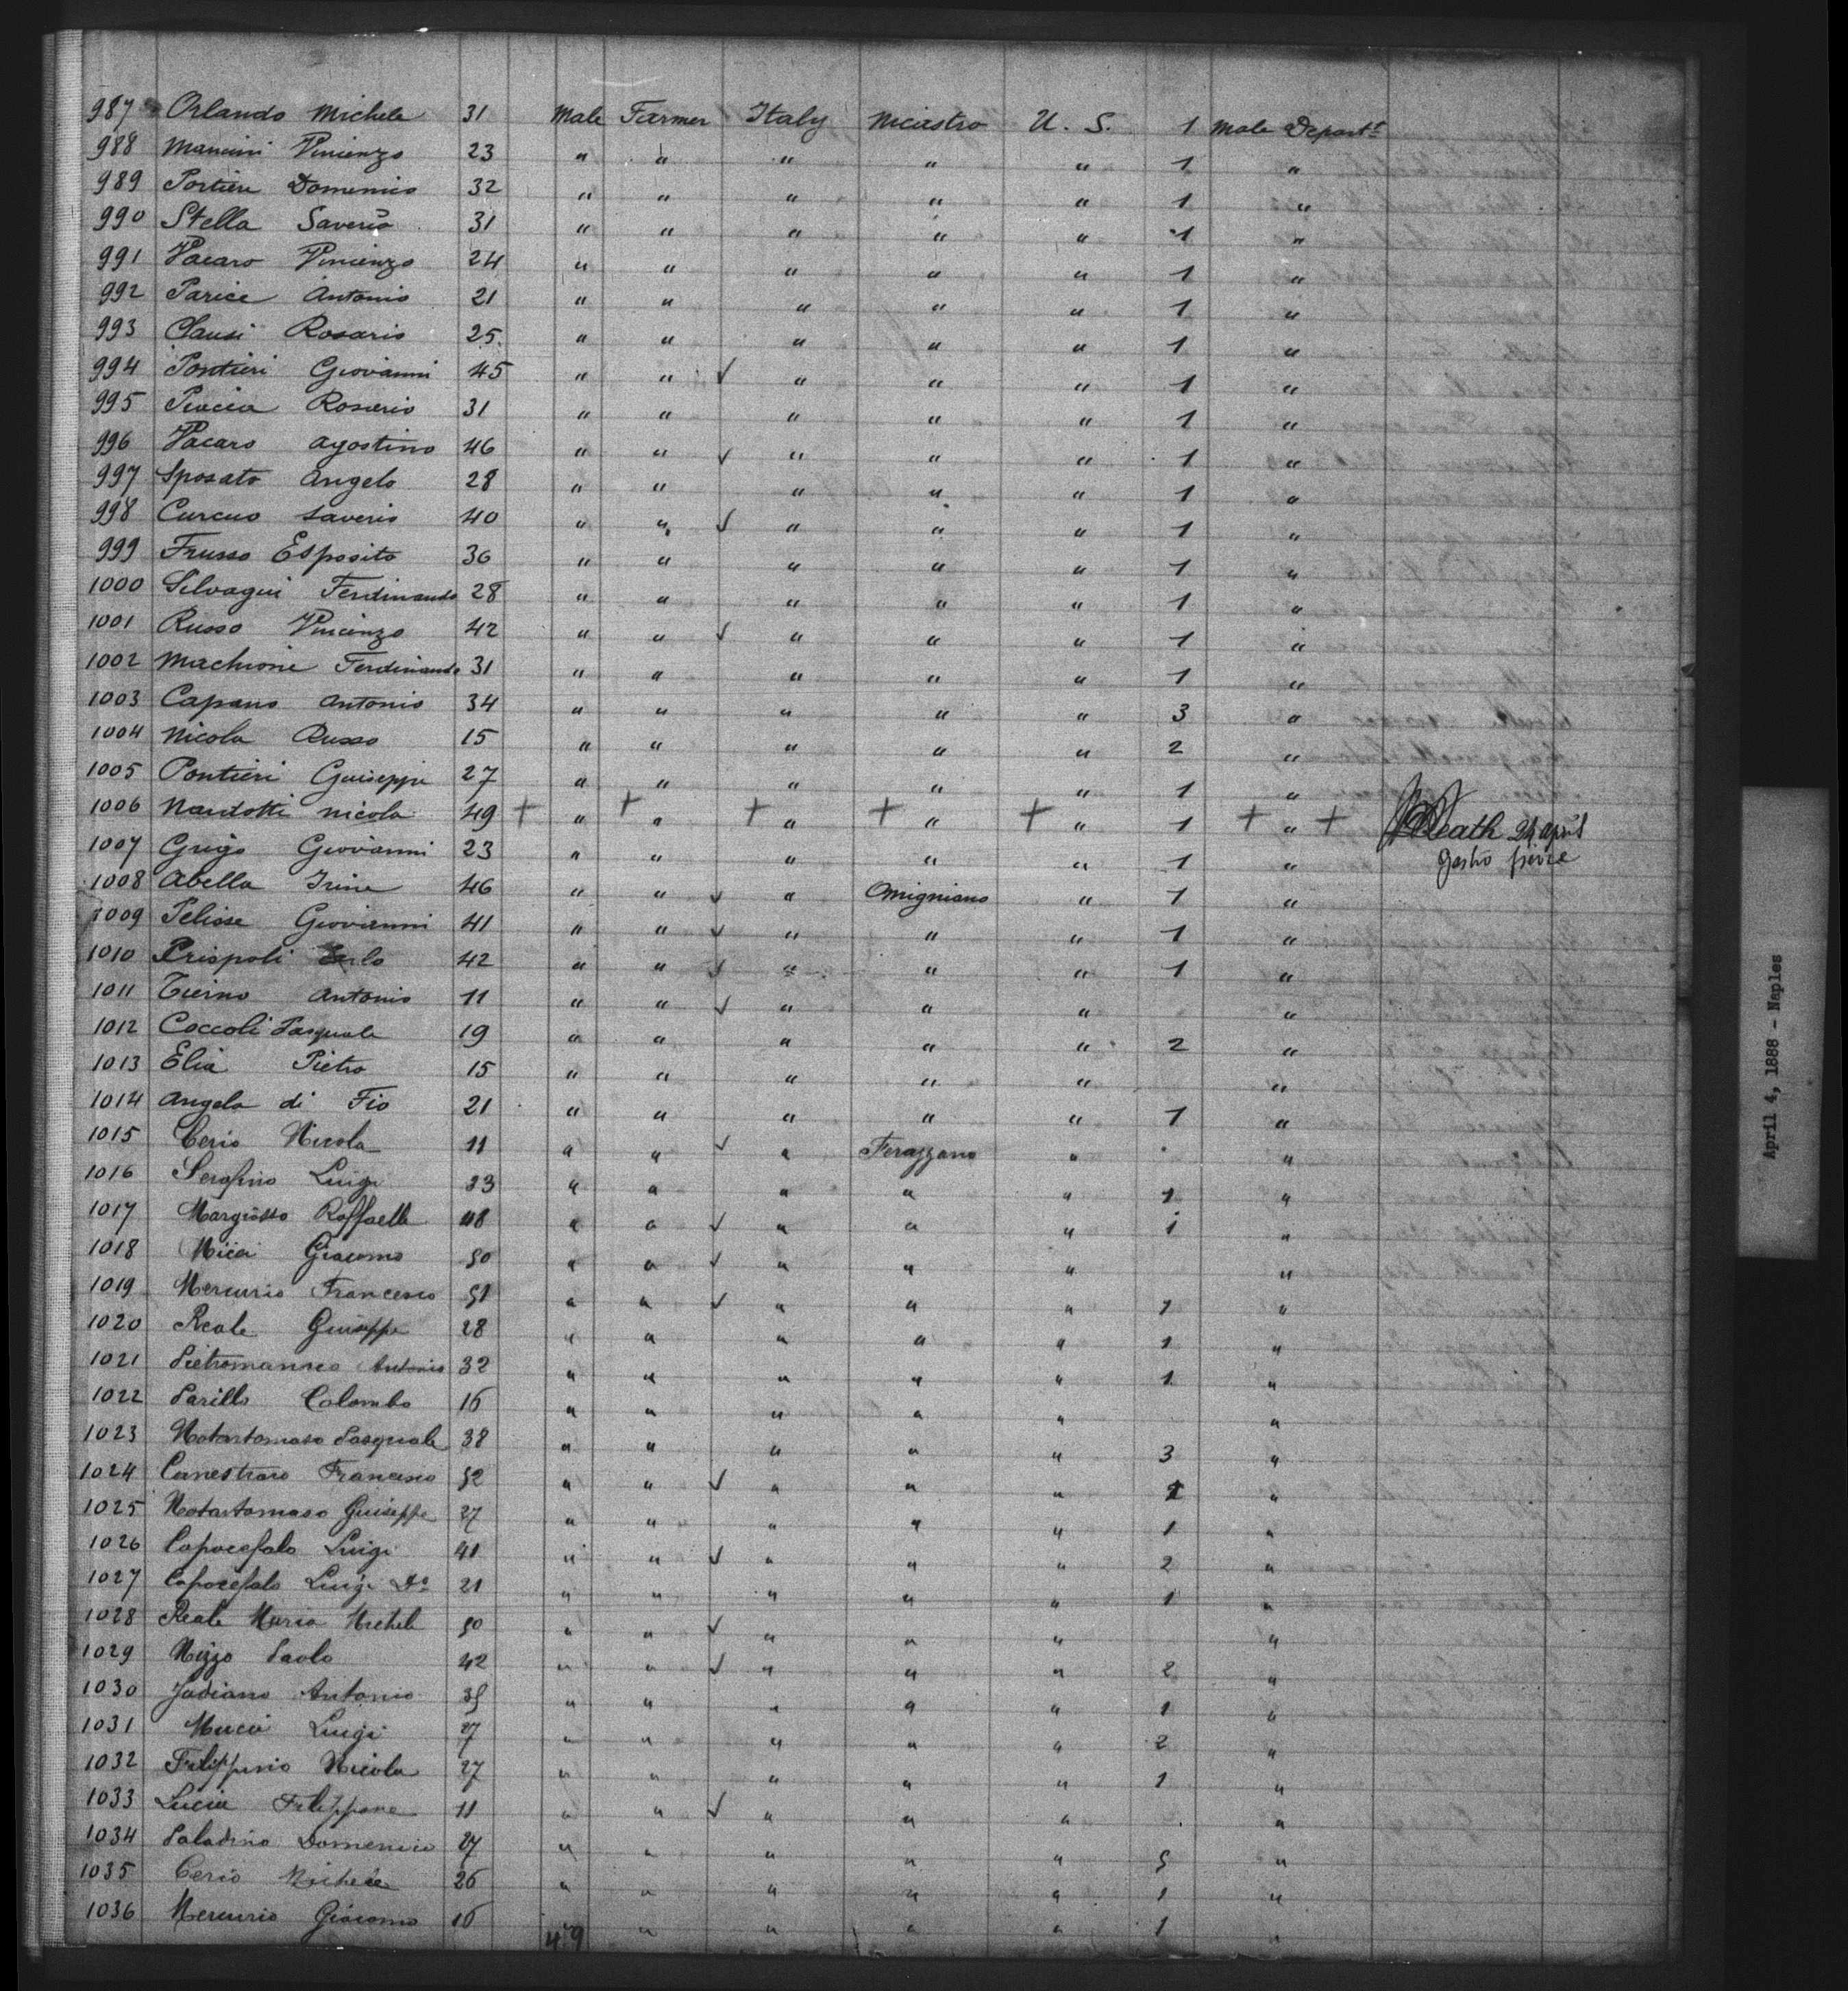 987 Orlando Michele 31 Male Farmer Italy Nicastro U. S. 1 Male Depart^t
988 Mancini Vincenzo 23 " " " " " 1 "
989 Portieri Domenico 32 " " " " " 1 "
990 Stella Saverio 31 " " " " " 1 "
991 Vacaro Vincenzo 24 " " " " " 1 "
992 Parice Antonio 21 " " " " " 1 "
993 Clausi Rosario 25 " " " " " 1 "
994 Pontieri Giovanni 45 " " ✓ " " " 1 "
995 Rosario 31 " " " " " 1 "
996 Vacaro Agostino 46 " " ✓ " " " 1 "
997 Sposato Angelo 28 " " " " " 1 "
998 Curcuo Saverio 40 " " ✓ " " " 1 "
999 Frusso Esposito 36 " " " " " 1 "
1000 Selvagui Ferdinando 28 " " " " " 1 "
1001 Russo Vincenzo 42 " " ✓ " " " 1 "
1002 Machione Ferdinando 31 " " " " " 1 "
1003 Capano Antonio 34 " " " " " 3 "
1004 Nicola Russo 15 " " " " " 2 "
1005 Pontieri Guiseppe 27 " " " " " 1 "
1006 Nardotti Nicola 49 + " + " + " + " + " 1 + " + Death 24 april
gastro
1007 Grigo Giovanni 23 " " " " " 1 "
1008 Abella Irine 46 " " ✓ " Omigniano " 1 "
1009 Pelisse Giovanni 41 " " ✓ " " " 1 "
1010 Prispoli Carlo 42 " " ✓ " " " 1 "
1011 Tierno Antonio 11 " " ✓ " " " "
1012 Coccoli Pasquale 19 " " " " " 2 "
1013 Elia Pietro 15 " " " " " "
1014 Angelo di Fio 21 " " " " " 1 "
1015 Cerio Nicola 11 " " ✓ " Ferazzano " "
1016 Serafino Luigi 23 " " " " " 1 "
1017 Margiasso Raffaelle 48 " " ✓ " " " 1 "
1018 Micci Giacomo 50 " " ✓ " " " "
1019 Mercurio Francesco 51 " " ✓ " " " 1 "
1020 Reale Guiseppe 28 " " " " " 1 "
1021 Pietromanneo Antonio 32 " " " " " 1 "
1022 Parillo Colombo 16 " " " " " "
1023 Notartomaso Pasquale 38 " " " " " 3 "
1024 Canestraro Francesco 52 " " ✓ " " " 1 "
1025 Notartomaso Guiseppe 27 " " " " " 1 "
1026 Capocefalo Luigi 41 " " ✓ " " " 2 "
1027 Capocefalo Luigi D^o 21 " " " " " 1 "
1028 Reale Maria Michele 50 " " ✓ " " " "
1029 Nizzo Paolo 42 " " ✓ " " " 2 "
1030 Jadiano Antonio 35 " " " " " 1 "
1031 Mucci Luigi 27 " " " " " 2 "
1032 Filippino Nicola 27 " " " " " 1 "
1033 Lucia Filippone 11 " " ✓ " " " "
1034 Paladino Domenico 27 " " " " " 5 "
1035 Cerio Michele 26 " " " " " 1 "
1036 Mercurio Giacomo 16 " " " " " 1 "
49
April 4, 1888 - Naples